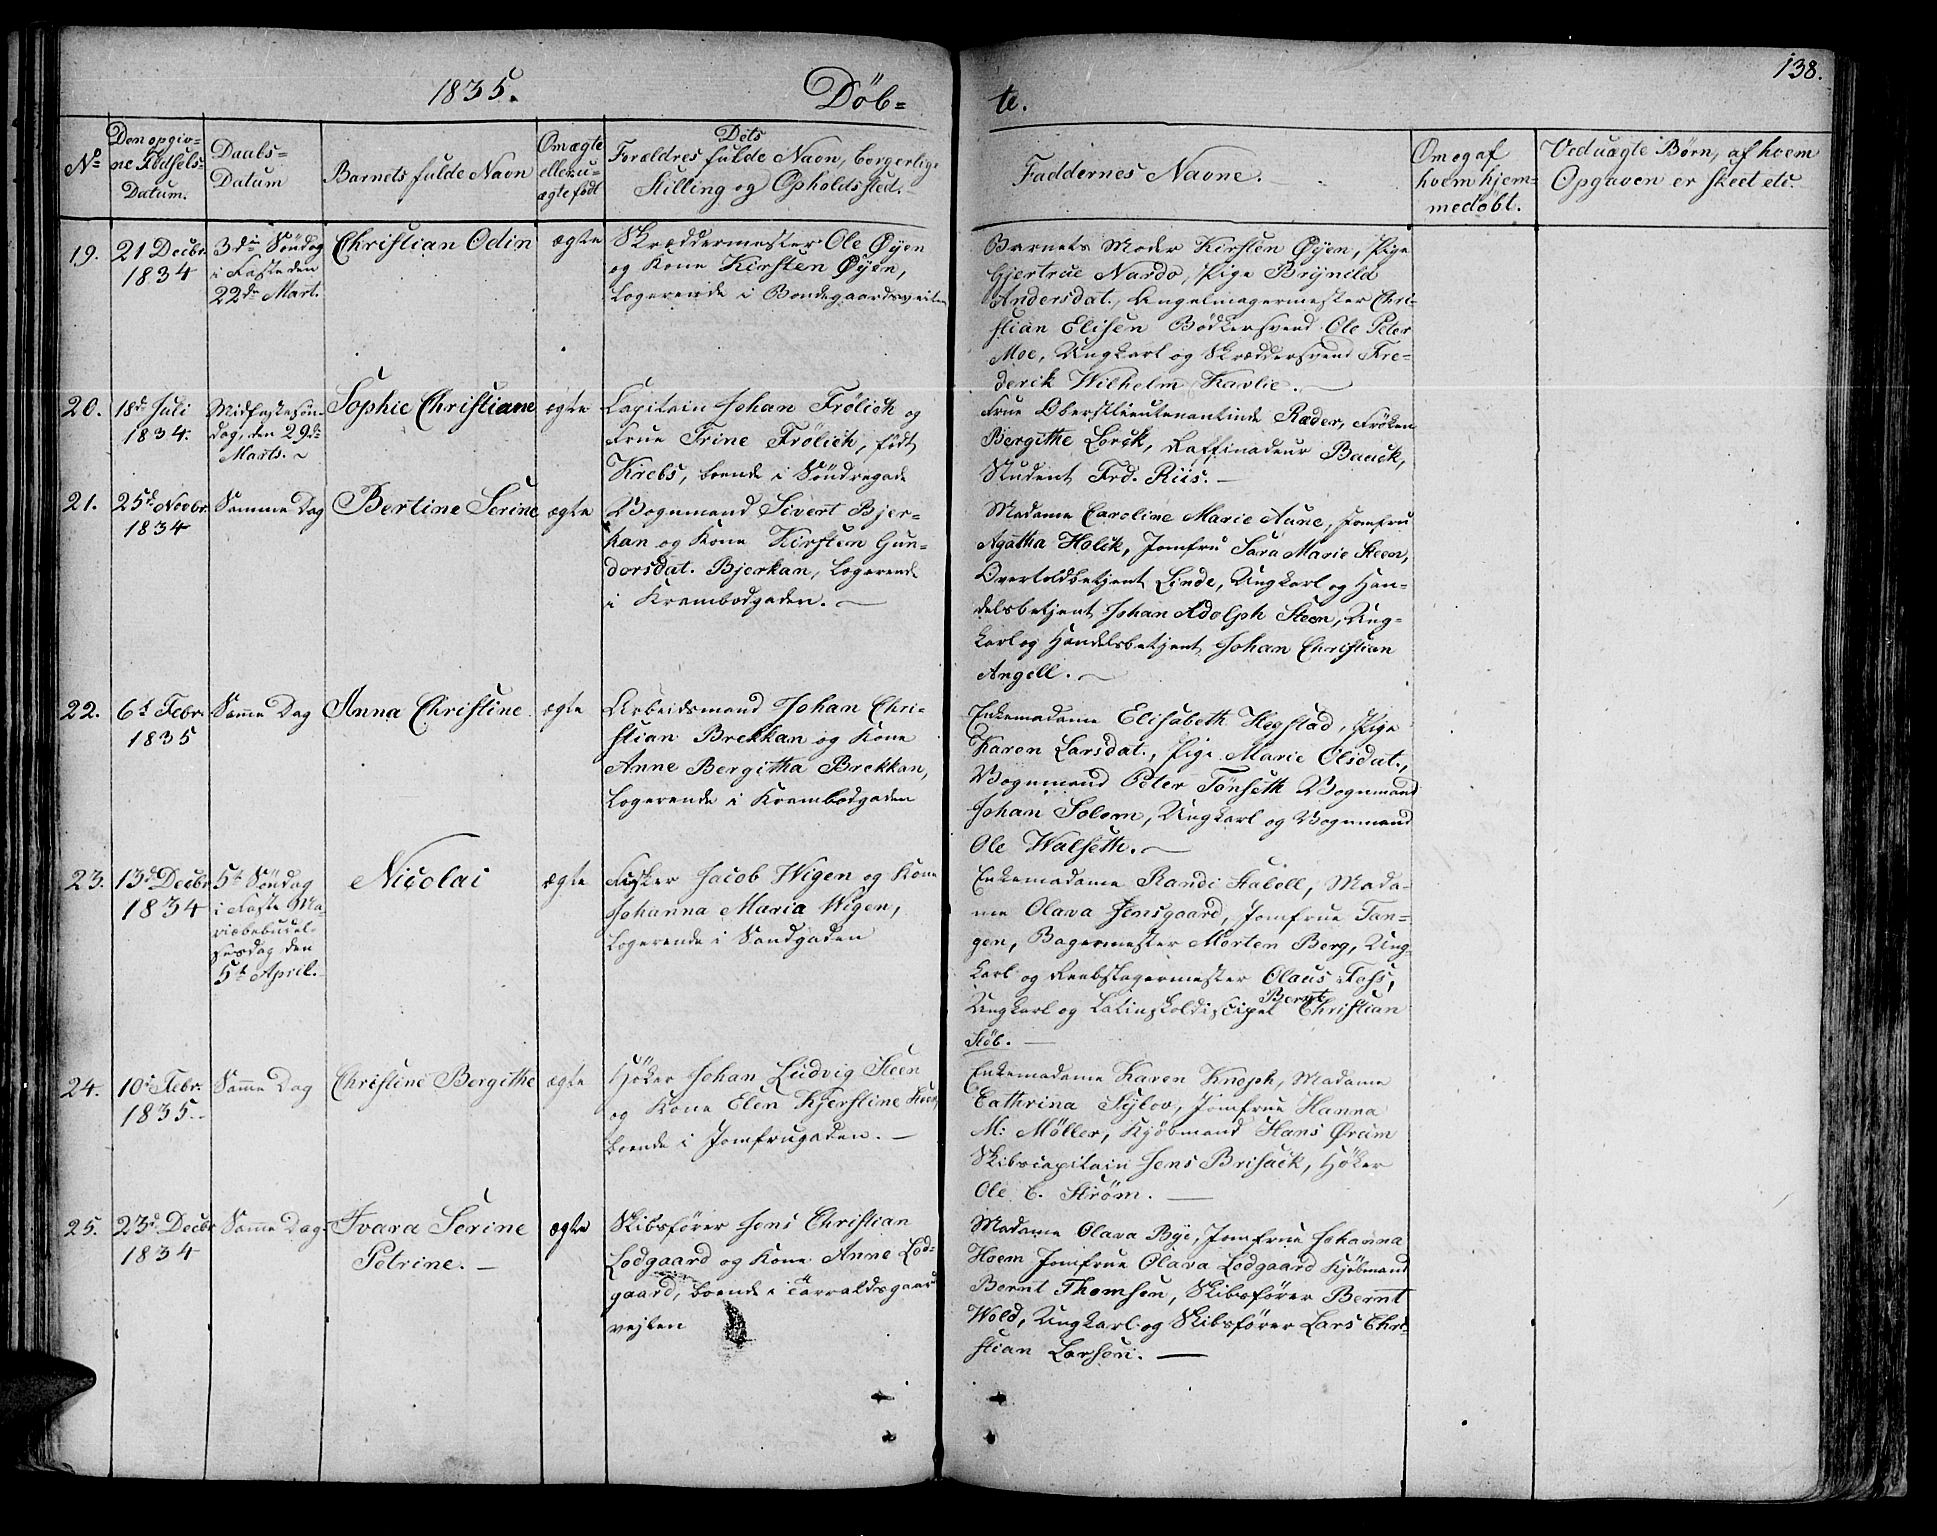 1835. Døb=
te. 138.
No
Den opgiv=
ne Fødsels-
Datum.
Daabs=
Datum
Barnets fulde Navn
Om ægte
eller u=
ægte født
Dets
Forældres fulde Navn, borgerlige
Stilling og Opholdssted.
Faddernes Navne.
Om og af
hvem hjem=
medøbt.
Ved uægte Børn, af hvem
Opgaven er skeet etc.
19.
21 Decbr.
1834
3die Søndag
i Faste den
22de Mart.
Christian Odin
ægte
Skræddermester Ole Øyen
og Kone Kirsten Øyen,
logerende i Bondegaardsveiten
Barnets Moder Kirsten Øyen, Pige
Gjertrue Nardo, Pige Brynild
Andersdat., Angelmagermester Chri-
stian Elisen Bødkersvend Ole Peter
Moe, Ungkarl og Skræddersvend Fre-
derik Wilhelm Kavlie.
20.
18de Juli
1834.
Midfastesøn-
dag, den 29de
Marts.
Sophie Christiane
ægte
Capitain Johan Frølich og
Frue Trine Frølich, født
Krebs, boende i Søndregade
Frue Oberstlieutenantinde Ræder, Frøken
Bergithe Lorck, Raffinadeur Bauck,
Student Frd. Riis.
21.
25de Novbr.
1834
Samme Dag
Bertine Serine
ægte
Vognmand Sivert Bjer-
kan og Kone Kirsten Gun-
dersdat. Bjerkan, logerende
i Krambodgaden.
Madame Caroline Marie Aune, Jomfru
Agatha Holck, Jomfru Sara Marie Steen,
Overtoldbetjent Linde, Ungkarl og Han-
delsbetjent Johan Adolph Steen, Ung-
karl og Handelsbetjent Johan Christian
Angell.
22.
6t Febr.
1835
Samme Dag
Anna Christine
ægte
Arbeidsmand Johan Chri-
stian Brekkan og Kone
Anne Bergitha Brekkan,
logerende i Krambodgaden
Enkemadame Elisabeth Hegstad, Pige
Karen Larsdat., Pige Marie Olsdat.,
Vognmand Peter Tønseth Vognmand
Johan Solem, Ungkarl og Vognmand
Ole Walseth.
23.
13de Decbr
1834
5t Søndag
i Faste Ma-
riæbebudel-
sesdag den
5t April.
Nicolai
ægte
Fisker Jacob Wigen og Kone
Johanna Maria Wigen,
logerende i Sandgaden
Enkemadame Randi Stabell, Mada-
me Olava Jensgaard, Jomfrue Tan-
gen, Bagermester Morten Berg, Ung-
karl og Reebslagermester Olaus Foss,
Ungkarl og Latinskoldiscipel Bernt Christian
Støb.
24.
10de Febr.
1835.
Samme Dag
Christine Bergithe
ægte
Høker Johan Ludvig Steen
og Kone Elen Kjerstine Steen,
boende i Jomfrugaden.
Enkemadame Karen Knoph, Madame
Cathrina Sylov, Jomfrue Hanna
M: Møller, Kjøbmand Hans Ørum
Skibscapitain Jens Brisack, Høker
Ole C. Strøm.
25.
23de Decbr
1834
Samme Dag
Ivara Serine
Petrine.
ægte
Skibsfører Jens Christian
Lodgaard og Kone Anne Lod-
gaard, boende i Tarraldsgaard
vejten
Madame Olava Bye, Jomfrue Johanna
Hoem Jomfrue Olava Lodgaard Kjøbmand
Bernt Thomsen, Skibsfører Bernt
Wold, Ungkarl og Skibsfører Lars Chri-
stian Larsen.